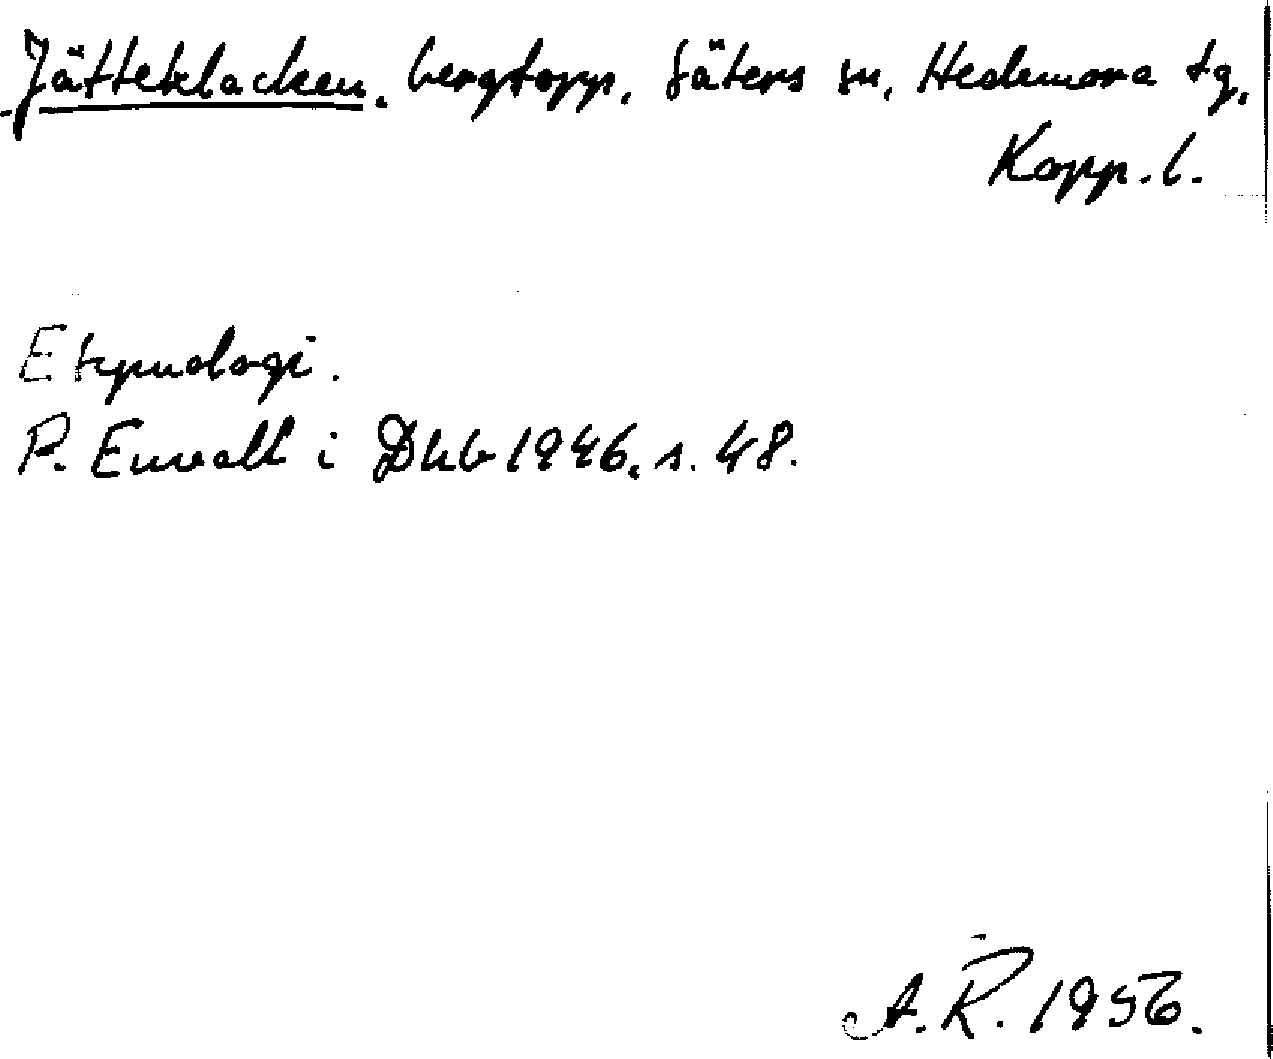 Jätteklacken, bergtopp, Säters sn, Hedemora tg,
Kopp. l.
Etymologi.
P. Envall i Dhb 1946, s. 48.
A. R. 1956.